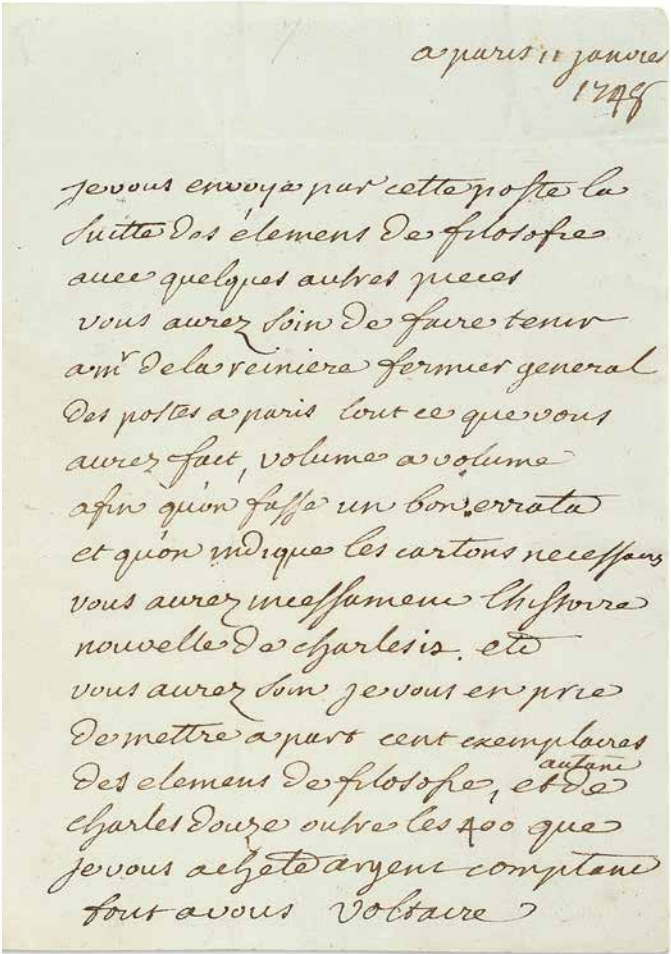 a paris 11 janvier
1748
je vous envoye par cette poste la
suitte des élemens de filosofie
avec quelques autres pieces
vous aurez soin de faire tenir
a mr de la reiniere fermier general
des postes a paris tout ce que vous
aurez fait, volume a volume
afin qu'on fasse un bon errata
et qu'on indique les cartons necessaires
vous aurez incessament lhistoire
nouvelle de charles 12. etc
vous aurez soin je vous en prie
de mettre a part cent exemplaires
des elemens de filosofie, et autant de
charles douze outre les 400 que
je vous achete argent comptant
tout a vous Voltaire